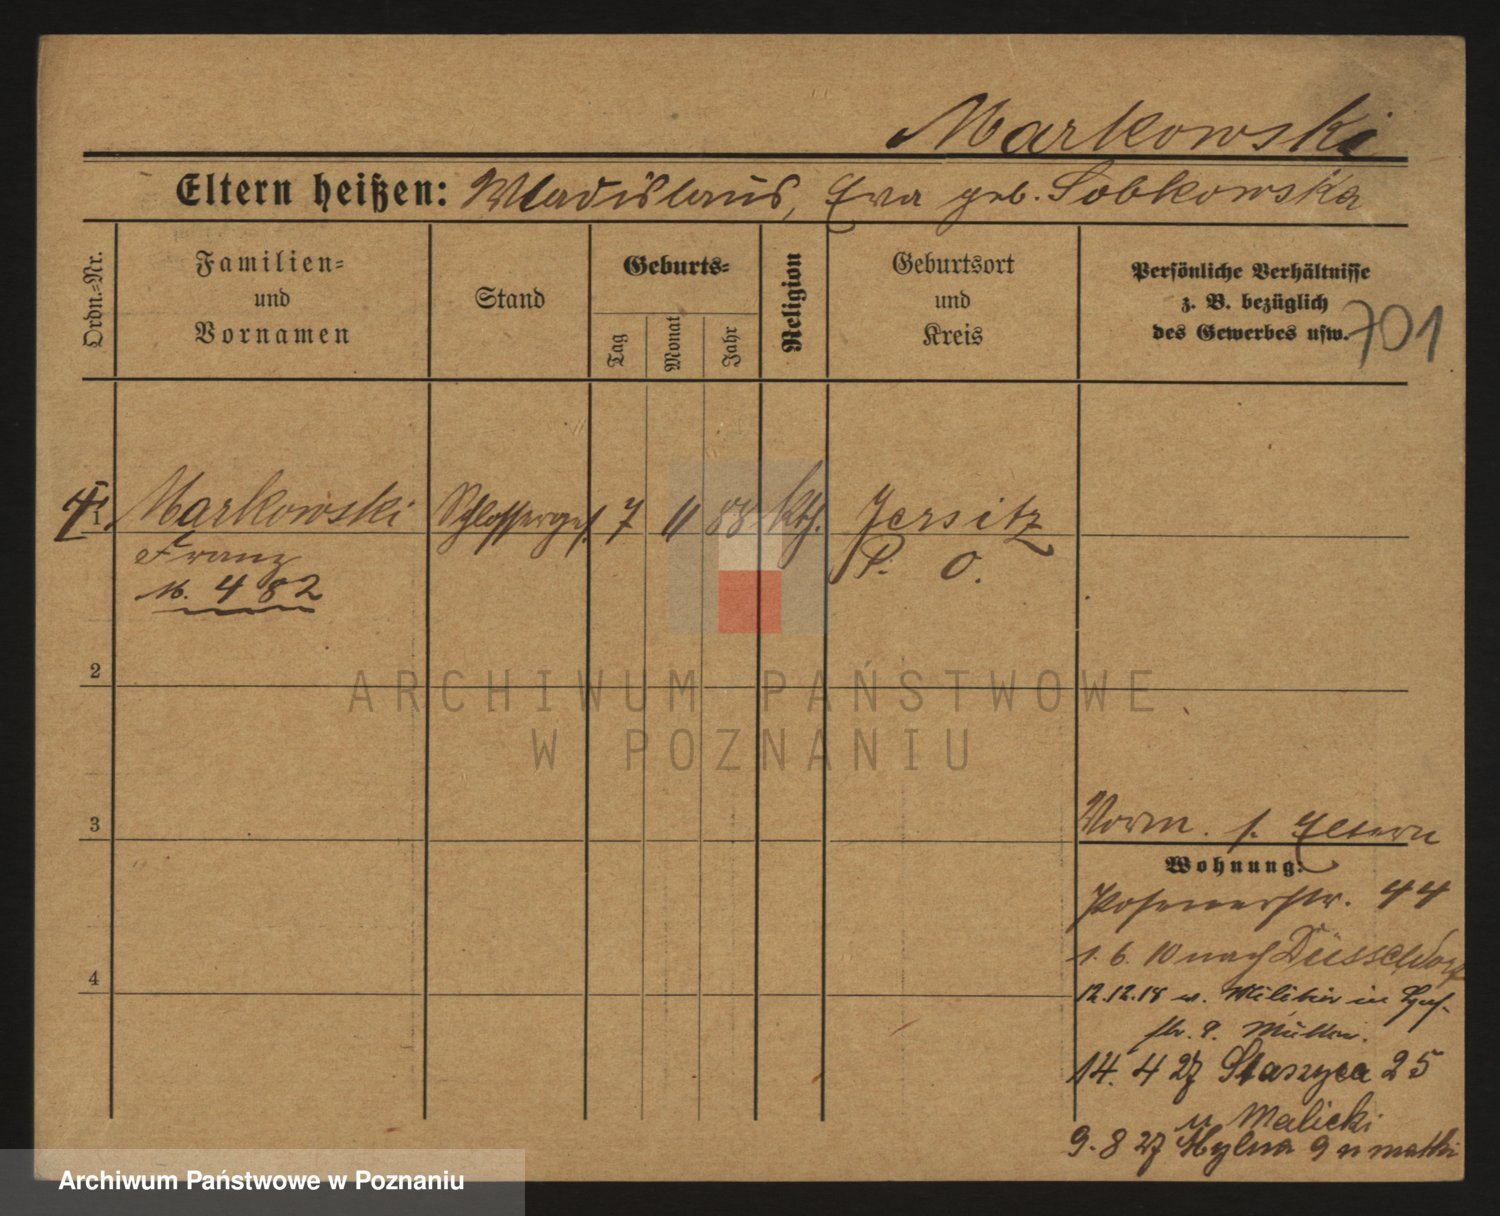 Markowski
Eltern heißen: Wladislaus, Eva geb. Sobkowska
Ordn.-Nr.
Familien-
und
Vornamen
Stand
Geburts-
Tag
Monat
Jahr
Religion
Geburtsort
und
Kreis
Persönliche Verhältnisse
z. B. bezüglich
des Gewerbes usw.
701
1 Markowski Schlosserges. 7 11 88 kth. Jersitz
Franz P. O.
16. 4 82
2
ARCHIWUM PAŃSTWOWE
W POZNANIU
3
Vorm. s. Eltern
Wohnung:
Posenerstr. 44
4
1. 6. 10 nach Düsseldorf
12.12.18 v. Militär in
str. 9.
14. 4 27 Staszyca 25
u Malicki
9. 8 27 Żylna 9 u matki
Archiwum Państwowe w Poznaniu